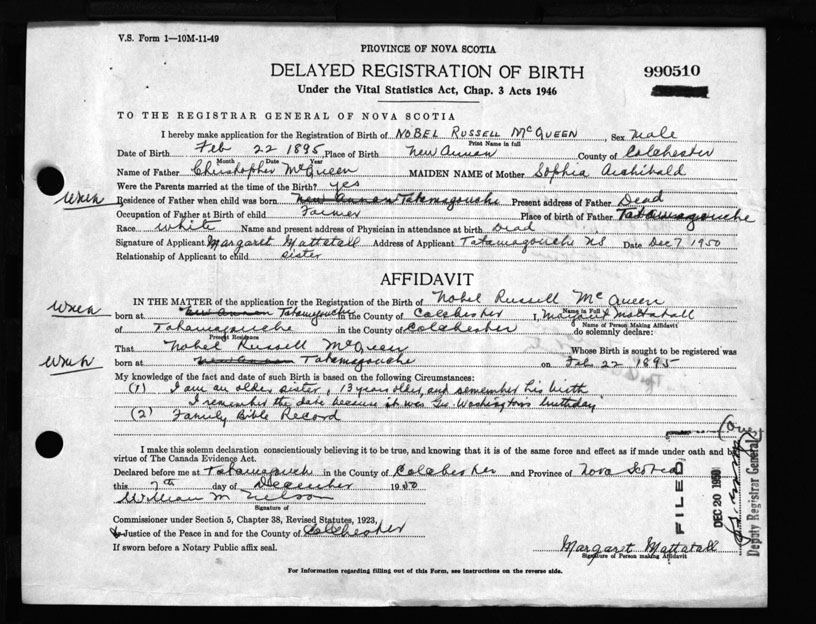 V.S. Form 1—10M-11-49
PROVINCE OF NOVA SCOTIA
DELAYED REGISTRATION OF BIRTH
990510
Under the Vital Statistics Act, Chap. 3 Acts 1946
TO THE REGISTRAR GENERAL OF NOVA SCOTIA
I hereby make application for the Registration of Birth of NOBEL RUSSELL McQUEEN Sex Male
Print Name in full
Date of Birth Feb 22 1895 Place of Birth New Annan County of Colchester
Month Date Year
Name of Father Christopher McQueen MAIDEN NAME of Mother Sophia Archibald
Were the Parents married at the time of the Birth? yes
Residence of Father when child was born New Annan Tatamagouche Present address of Father Dead
Occupation of Father at Birth of child Farmer Place of birth of Father Tatamagouche
Race White Name and present address of Physician in attendance at birth Dead
Signature of Applicant Margaret Mattatall Address of Applicant Tatamagouche NS Date Dec 7 1950
Relationship of Applicant to child sister
AFFIDAVIT
IN THE MATTER of the application for the Registration of the Birth of Nobel Russell McQueen
Name in Full
born at New Annan Tatamagouche in the County of Colchester I, Margaret Mattatall
Name of Person Making Affidavit
of Tatamagouche in the County of Colchester do solemnly declare:
Present Residence
That Nobel Russell McQueen Whose Birth is sought to be registered was
born at New Annan Tatamagouche on Feb 22 1895
My knowledge of the fact and date of such Birth is based on the following Circumstances:
(1) I am an older sister, 13 years older, and remember his birth
I remember the date because it was Geo. Washington's birthday
(2) Family Bible Record
(over)
I make this solemn declaration conscientiously believing it to be true, and knowing that it is of the same force and effect as if made under oath and by
virtue of The Canada Evidence Act.
Declared before me at Tatamagouche in the County of Colchester and Province of Nova Scotia
this 7th day of December 1950
William M Nelson
Signature of
Commissioner under Section 5, Chapter 38, Revised Statutes, 1923,
Justice of the Peace in and for the County of Colchester
If sworn before a Notary Public affix seal.
Margaret Mattatall
Signature of Person making Affidavit
FILED
DEC 20 1950
Deputy Registrar General
For Information regarding filling out of this Form, see instructions on the reverse side.